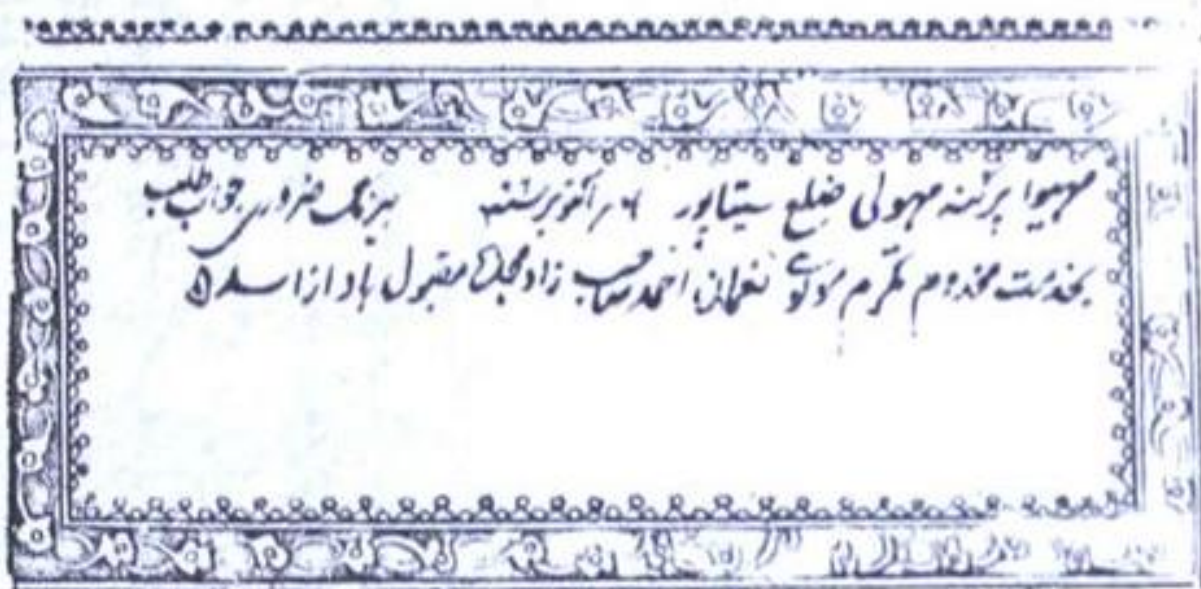 مہیوا پرگنہ مہولی ضلع سیتاپور ۶ اکتوبر سنہ بیرنگ ضروری جواب طلب
بخدمت مخدوم مکرم مولوی نعمان احمد صاحب زاد مجدہ مقبول باد از